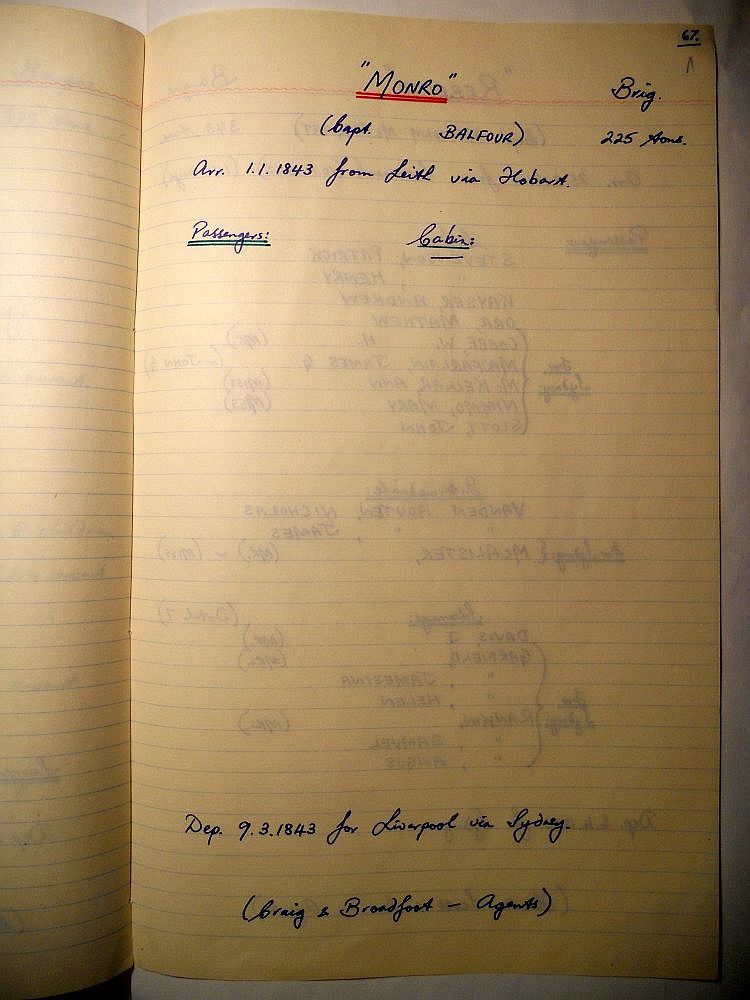 67.
"MONRO" Brig.
(Capt. BALFOUR) 225 tons.
Arr. 1.1.1843 from Leith via Hobart.
Passengers: Cabin:
Dep. 9.3.1843 for Liverpool via Sydney.
(Craig & Broadfoot — Agents)